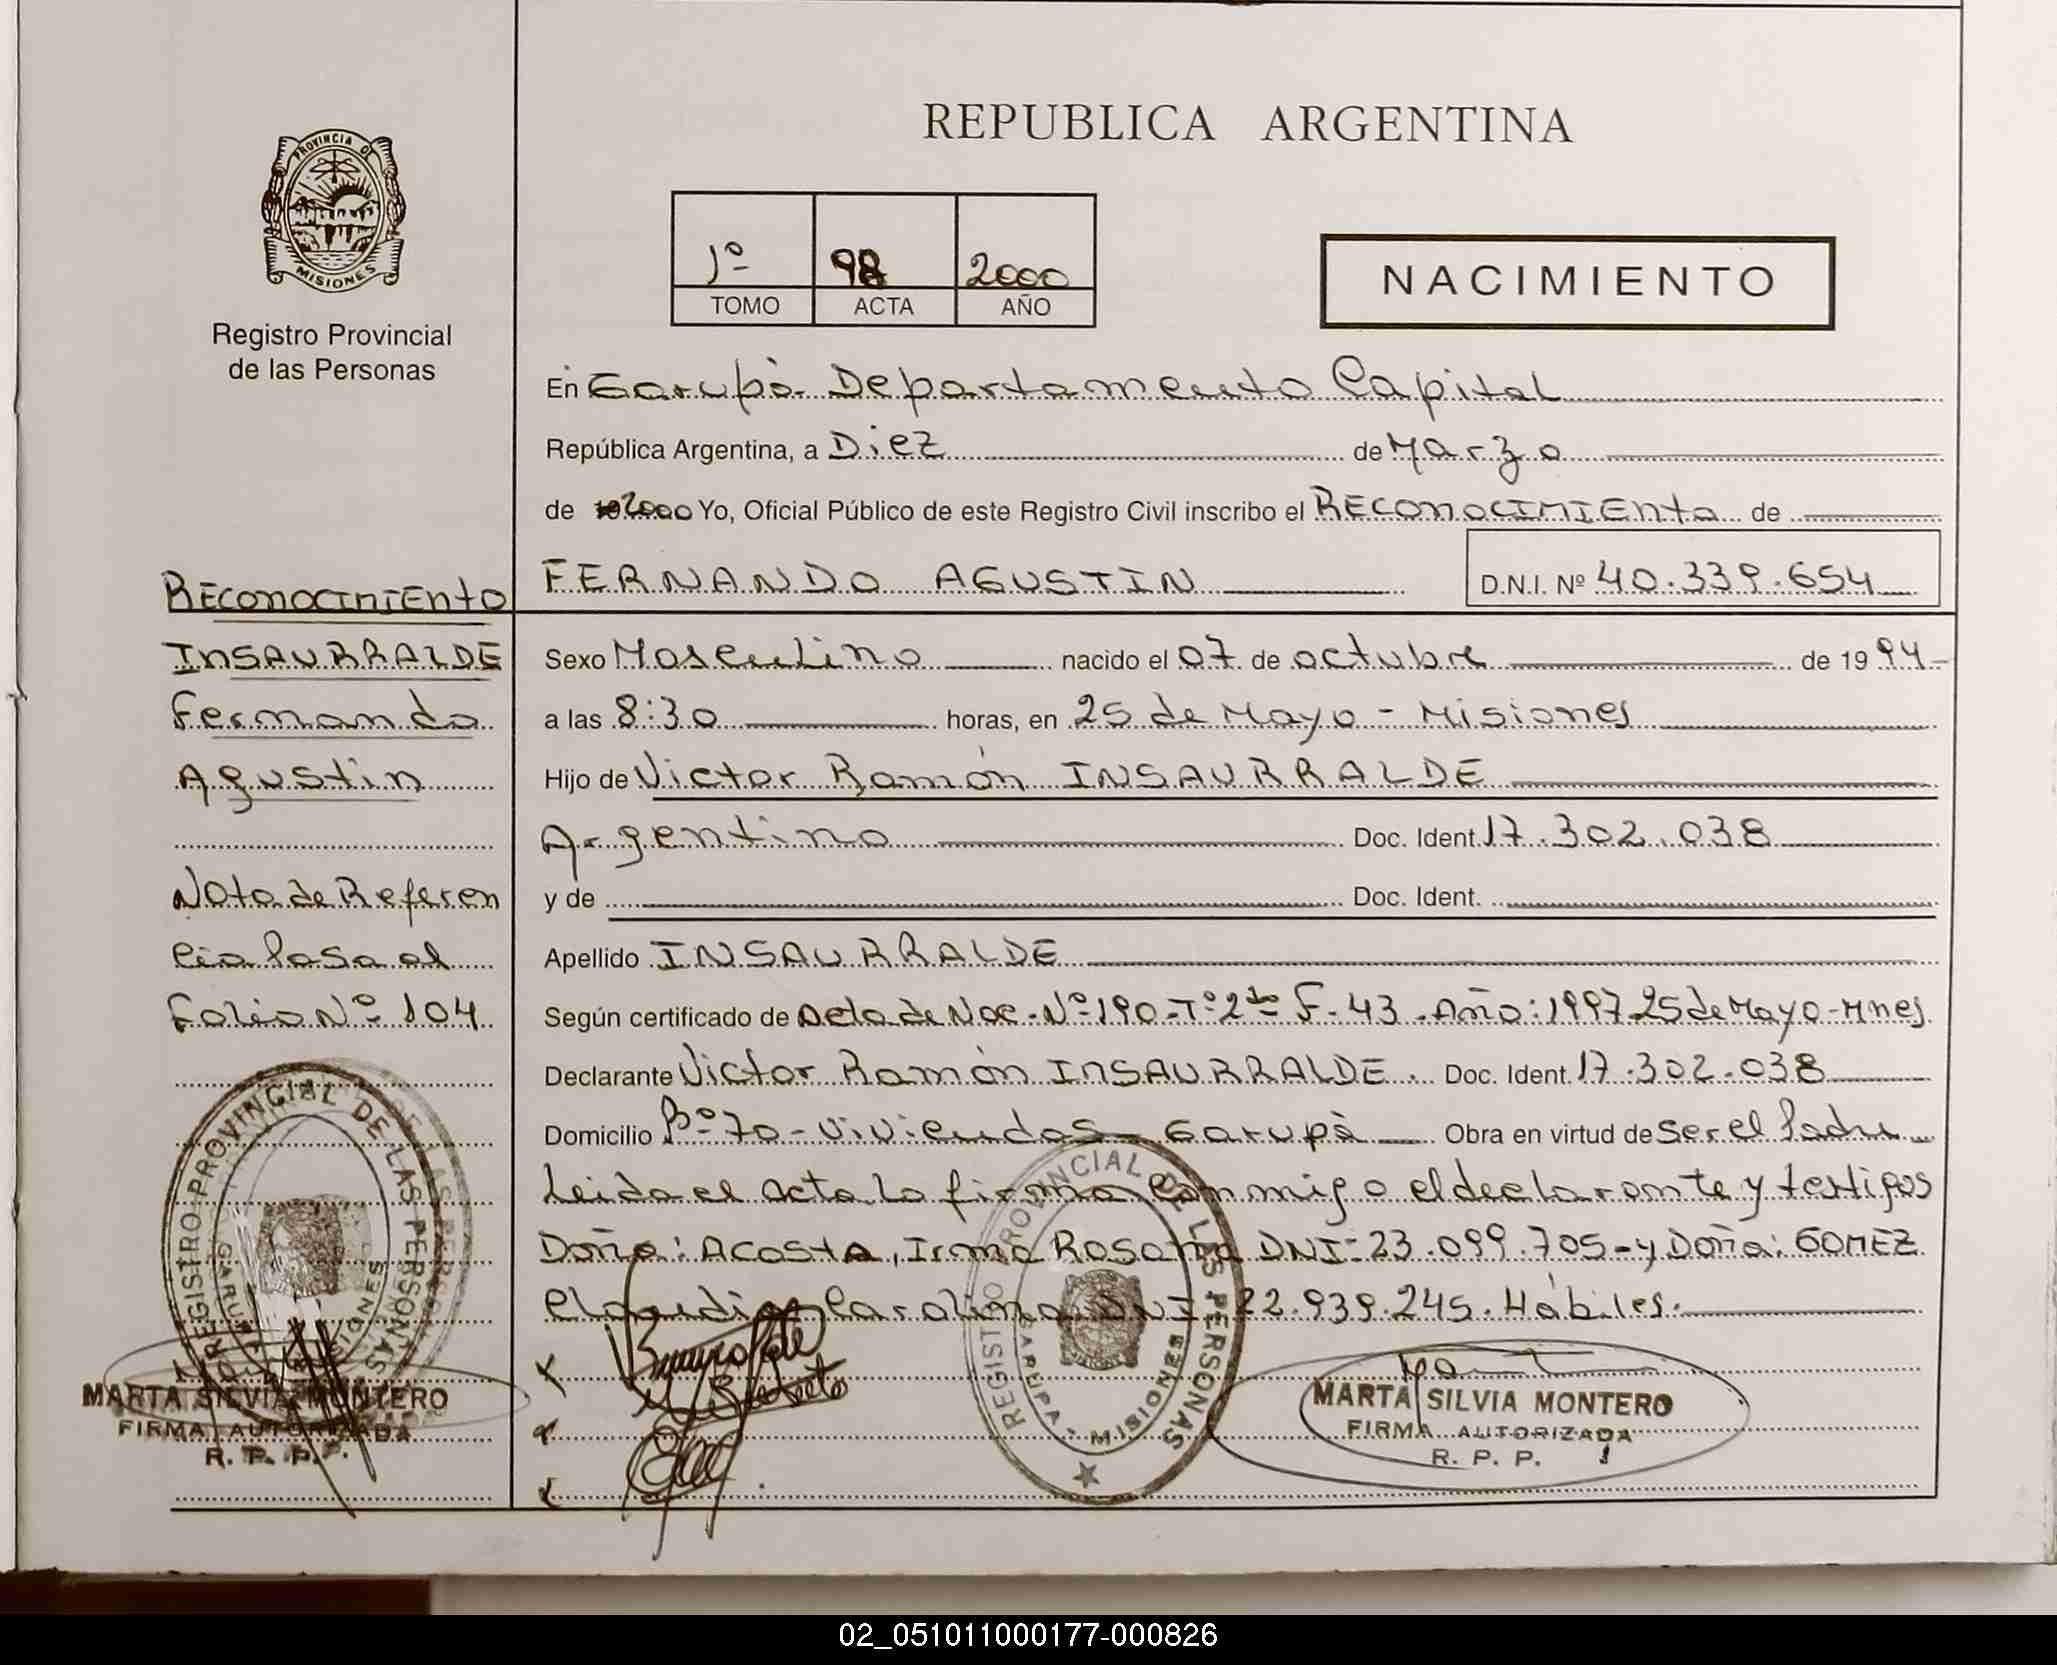 REPUBLICA ARGENTINA
PROVINCIA DE
MISIONES
Registro Provincial
de las Personas
1º 98 2000
TOMO ACTA AÑO
NACIMIENTO
En Garupà Departamento Capital
República Argentina, a Diez de Marzo
de 2000 Yo, Oficial Público de este Registro Civil inscribo el RECONOCIMIENTO de
FERNANDO AGUSTIN D.N.I. Nº 40.339.654
RECONOCIMIENTO
INSAURRALDE
Fernando
Agustin
Nota de Referen
cia Pasa al
Folio Nº 104
Sexo Masculino nacido el 07 de octubre de 1994-
a las 8:30 horas, en 25 de Mayo - Misiones
Hijo de Victor Ramón INSAURRALDE
Argentino Doc. Ident. 17.302.038
y de Doc. Ident.
Apellido INSAURRALDE
Según certificado de Acta de Nac. Nº 190-Tº 2do F-43. Año: 1997 25 de Mayo-Mnes.
Declarante Victor Ramón INSAURRALDE. Doc. Ident. 17.302.038
Domicilio Bº 70-Viviendas- Garupà Obra en virtud de ser el Padre
Leida el acta la firma conmigo el declarante y testigos
Doña: ACOSTA, Irma Rosana DNI: 23.099.705-y Doña: GOMEZ
Claudia Carolina DNI 22.939.245. Hábiles.
REGISTRO PROVINCIAL DE LAS PERSONAS
GARUPA - MISIONES
MARTA SILVIA MONTERO
FIRMA AUTORIZADA
R. P. P.
REGISTRO PROVINCIAL DE LAS PERSONAS
GARUPA - MISIONES
MARTA SILVIA MONTERO
FIRMA AUTORIZADA
R. P. P.
02_051011000177-000826